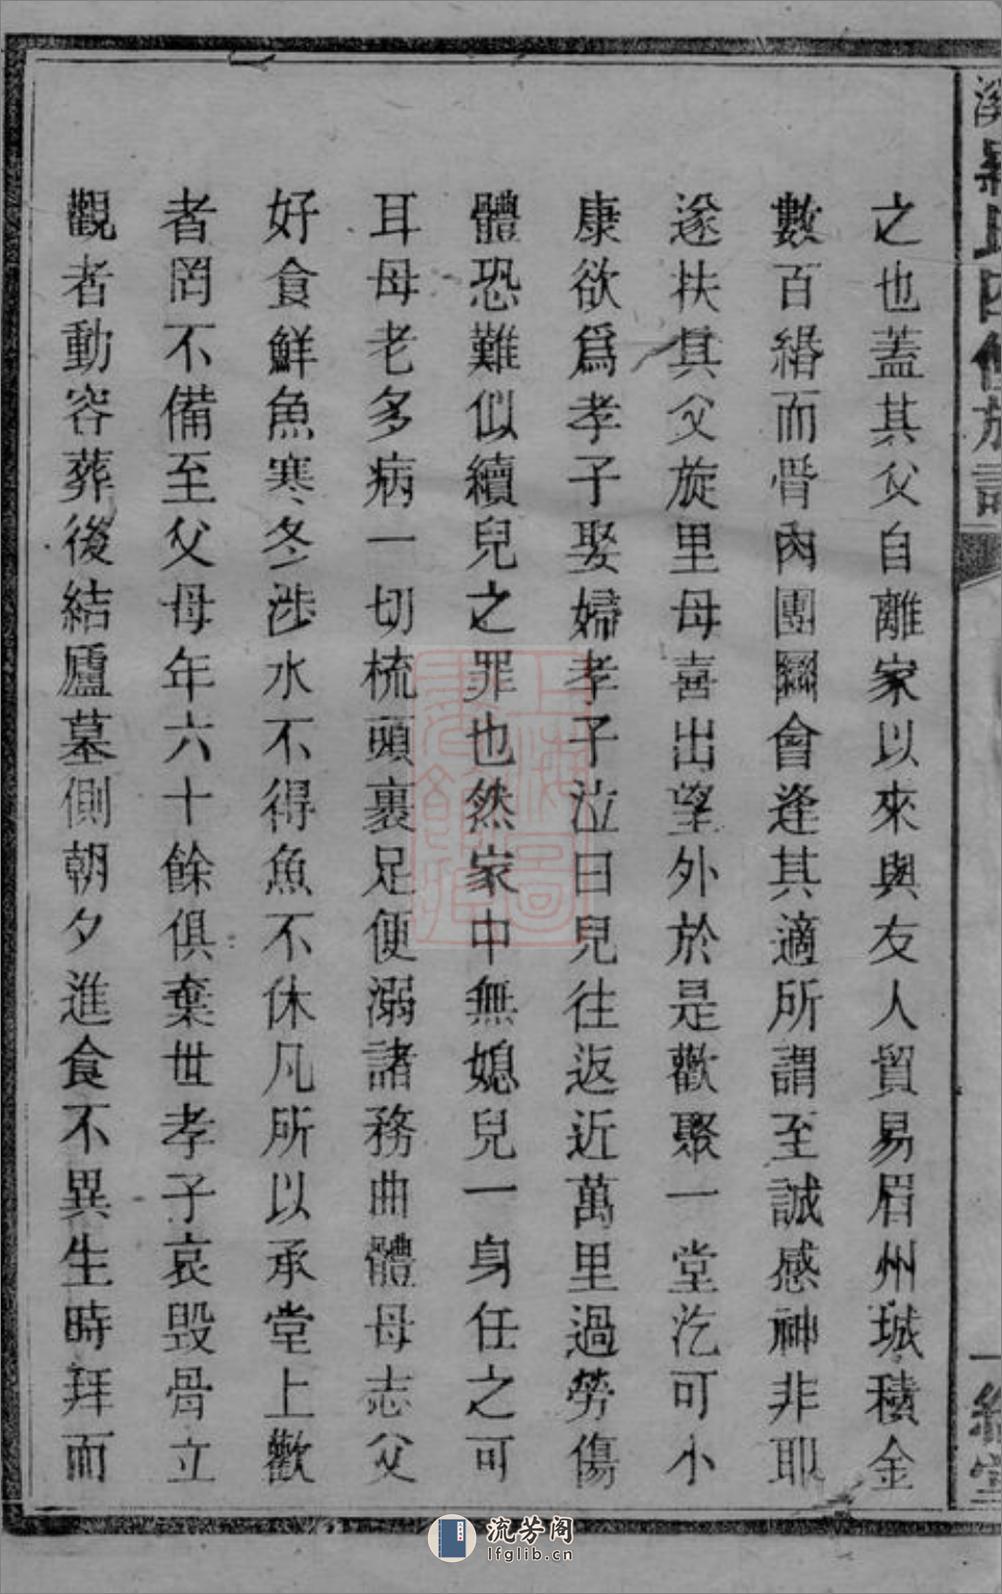 之也蓋其父自離家以來與友人貿易眉州城積金
數百緡而骨內團圞會逢其適所謂至誠感神非耶
遂扶其父旋里母喜出望外於是歡聚一堂汔可小
康欲爲孝子娶婦孝子泣曰兒往返近萬里過勞傷
體恐難似續兒之罪也然家中無媳兒一身任之可
耳母老多病一切梳頭裹足便溺諸務曲體母志父
好食鮮魚寒冬涉水不得魚不休凡所以承堂上歡
者罔不備至父母年六十餘俱棄世孝子哀毀骨立
觀者動容葬後結廬墓側朝夕進食不異生時拜而
流芳阁
lfglib.cn